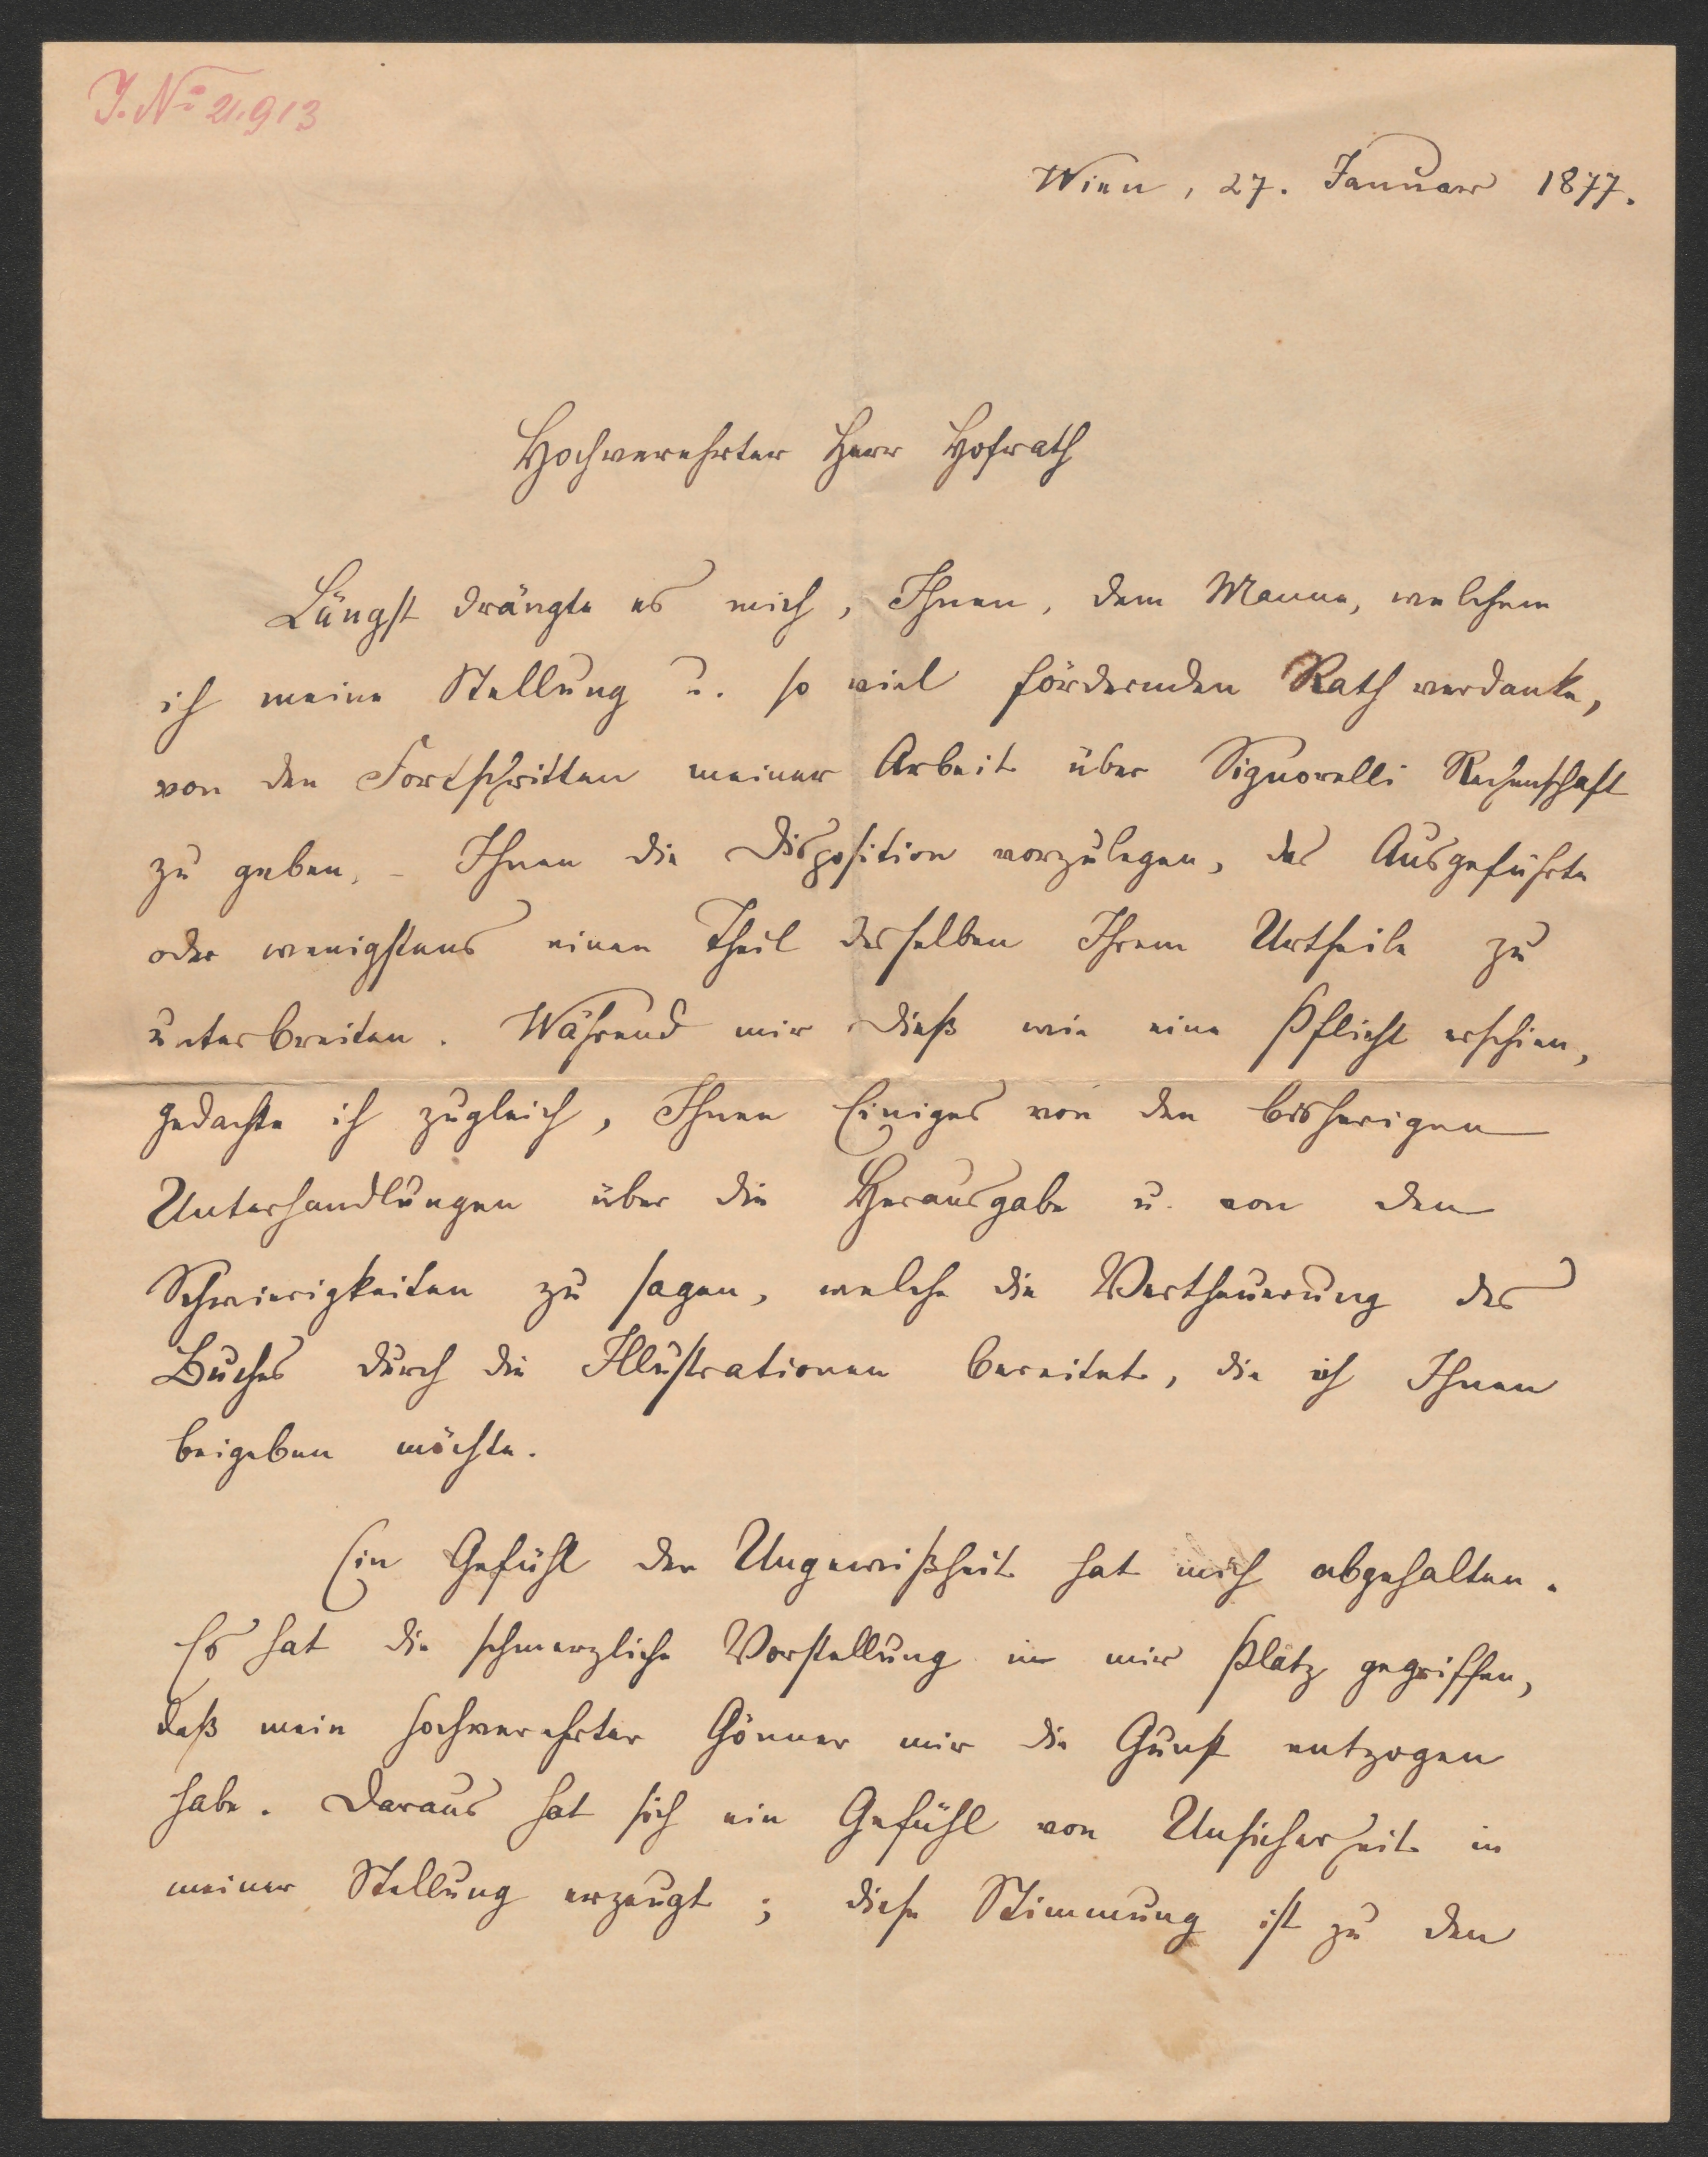 J. No 21.913
Wien, 27. Januar 1877.
Hochverehrter Herr Hofrath
Längst drängte es mich, Ihnen, dem Manne, welchem
ich meine Stellung u. so viel fördernden Rath verdanke,
von den Fortschritten meiner Arbeit über Signorelli Rechenschaft
zu geben, – Ihnen die Disposition vorzulegen, das Ausgeführte
oder wenigstens einen Theil desselben Ihrem Urtheile zu
unterbreiten. Während mir dieß wie eine Pflicht erschien,
gedachte ich zugleich, Ihnen Einiges von den bisherigen
Unterhandlungen über die Herausgabe u. von den
Schwierigkeiten zu sagen, welche die Vertheuerung des
Buches durch die Illustrationen bereitet, die ich Ihnen
beigeben möchte.
Ein Gefühl der Ungewißheit hat mich abgehalten.
Es hat die schmerzliche Vorstellung in mir Platz gegriffen,
daß mein hochverehrter Gönner mir die Gunst entzogen
habe. Daraus hat sich ein Gefühl von Unsicherheit in
meiner Stellung erzeugt; diese Stimmung ist zu den